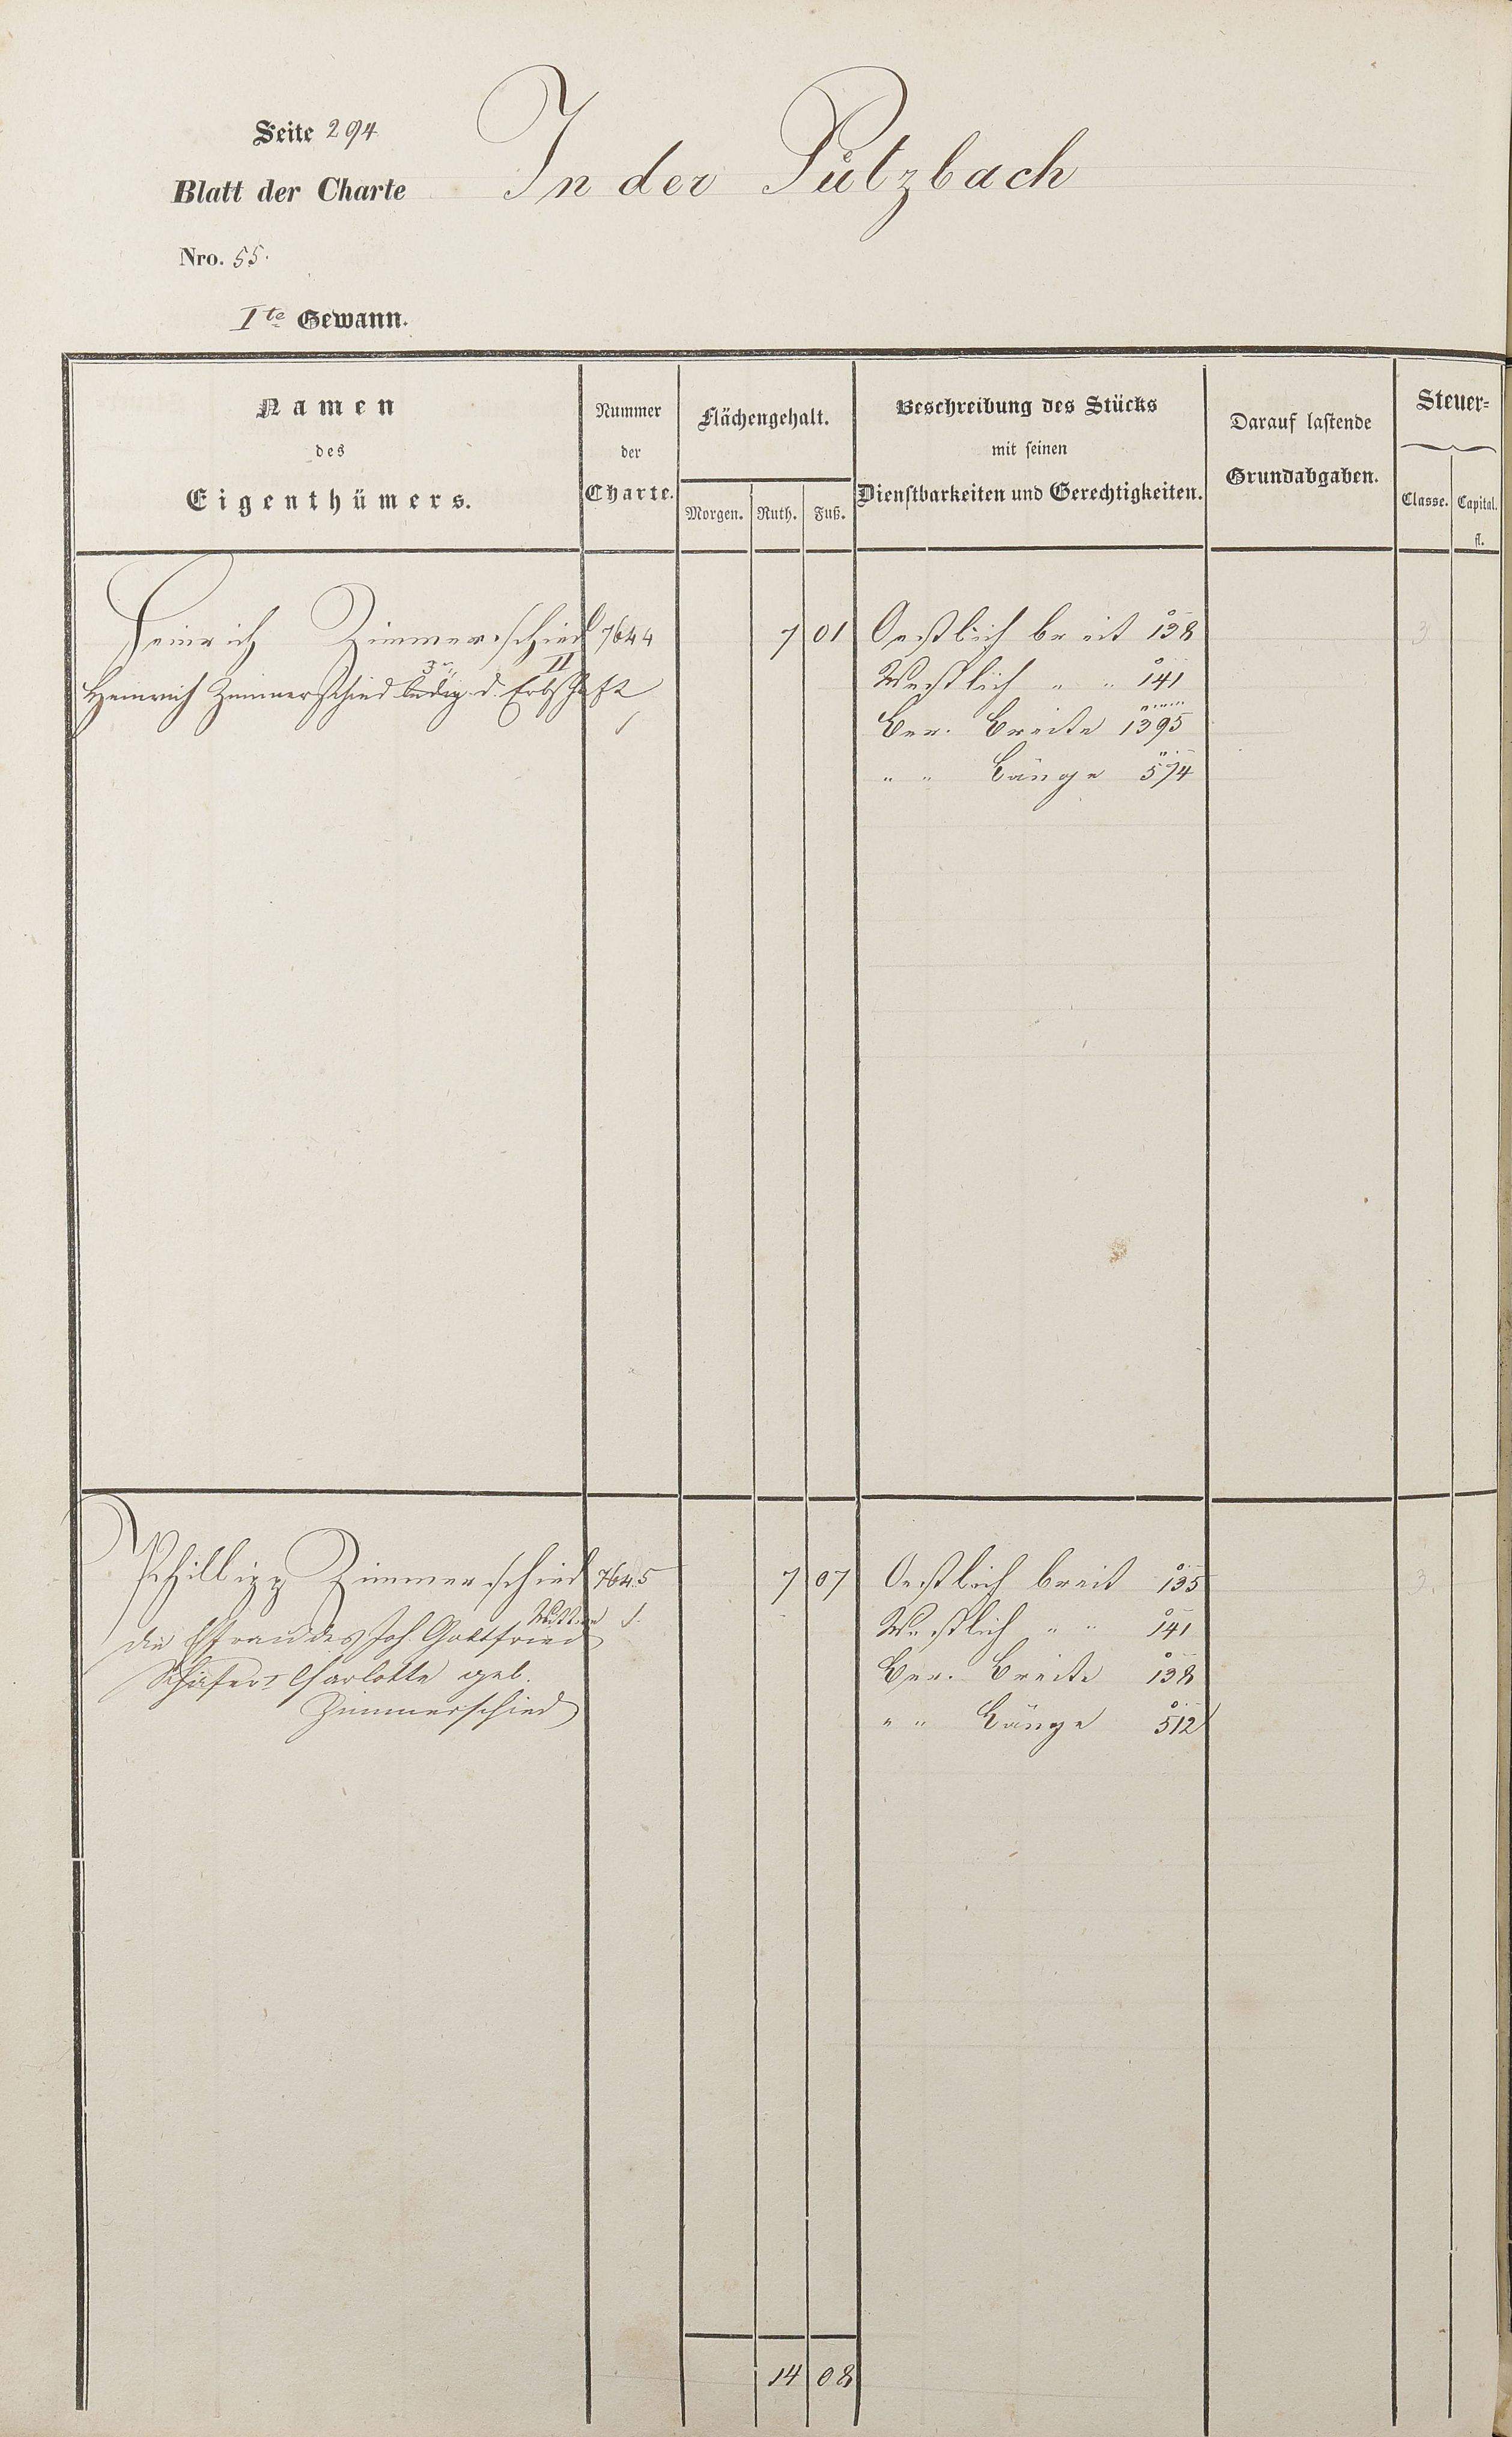 Seite 294
Blatt der Charte
In der Pützbach
Nro. 55.
Ite Gewann.
Namen des Eigenthümers.
Nummer der Charte.
Flächengehalt.
Morgen. Ruth. Fuß.
Beschreibung des Stücks
mit seinen
Dienstbarkeiten und Gerechtigkeiten.
Darauf lastende
Grundabgaben.
Steuer-
Classe. Capital.
fl.
Heinrich Zimmerschied 7644 7 01 Oestlich breit 138 3
II
Heinrich Zimmerschied 3r ledig d. Erbschaft
Westlich " " 141
Ber. Breite 1395
" " Länge 574
Phillipp Zimmerschied 7645 7 07 Oestlich breit 135 3.
Wittwe 1.
die Ehefrau des Joh. Gottfried
Westlich " " 141
Schäfer Charlotte geb.
Ber. Breite 138
Zimmerschied
" " Länge 512
14 08